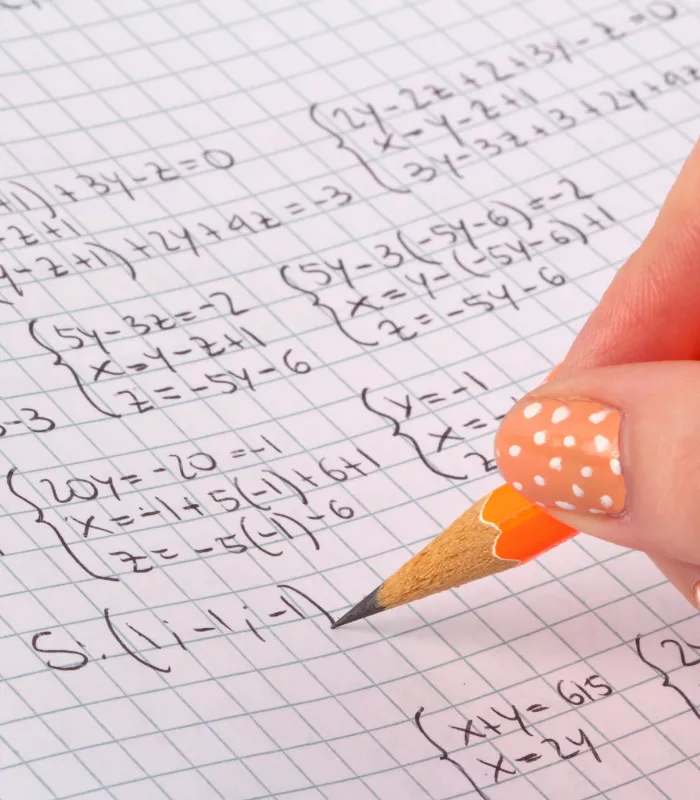 2y-2z+2+3y-z=0
x=y-z+1
3y-3z+3+2y+4z
+1)+3y-z=0
-z+1
(y-z+1)+2y+4z=-3
5y-3(-5y-6)=-2
x=y-(-5y-6)+1
z=-5y-6
5y-3z=-2
x=y-z+1
z=-5y-6
-3
y=-1
x=-
z
20y=-20 =-1
x=-1+5(-1)+6+1
z=-5(-1)-6
S:(1;-1;-1)
x+y=615
x=2y
2